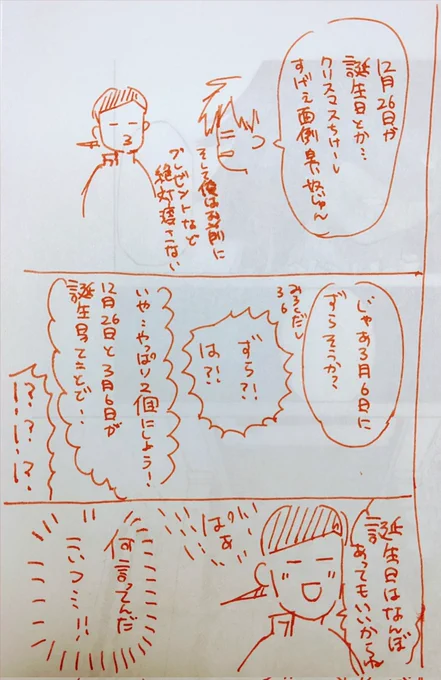 12月26日が
誕生日とか…
クリスマスちけーし
すげえ面倒臭い
そして俺はお前に
プレゼントなど
絶対渡さない
じゃあ3月6日に
ずらそうか?
みろくだし
36
ずら?!
は?!
いや…やっぱり2個にしよう!
12月26日と3月6日が
誕生日ってことで…
!?!?!?
誕生日はなんぼ
あってもいいからね
はぁ
何言ってんだ
こいつ…!!